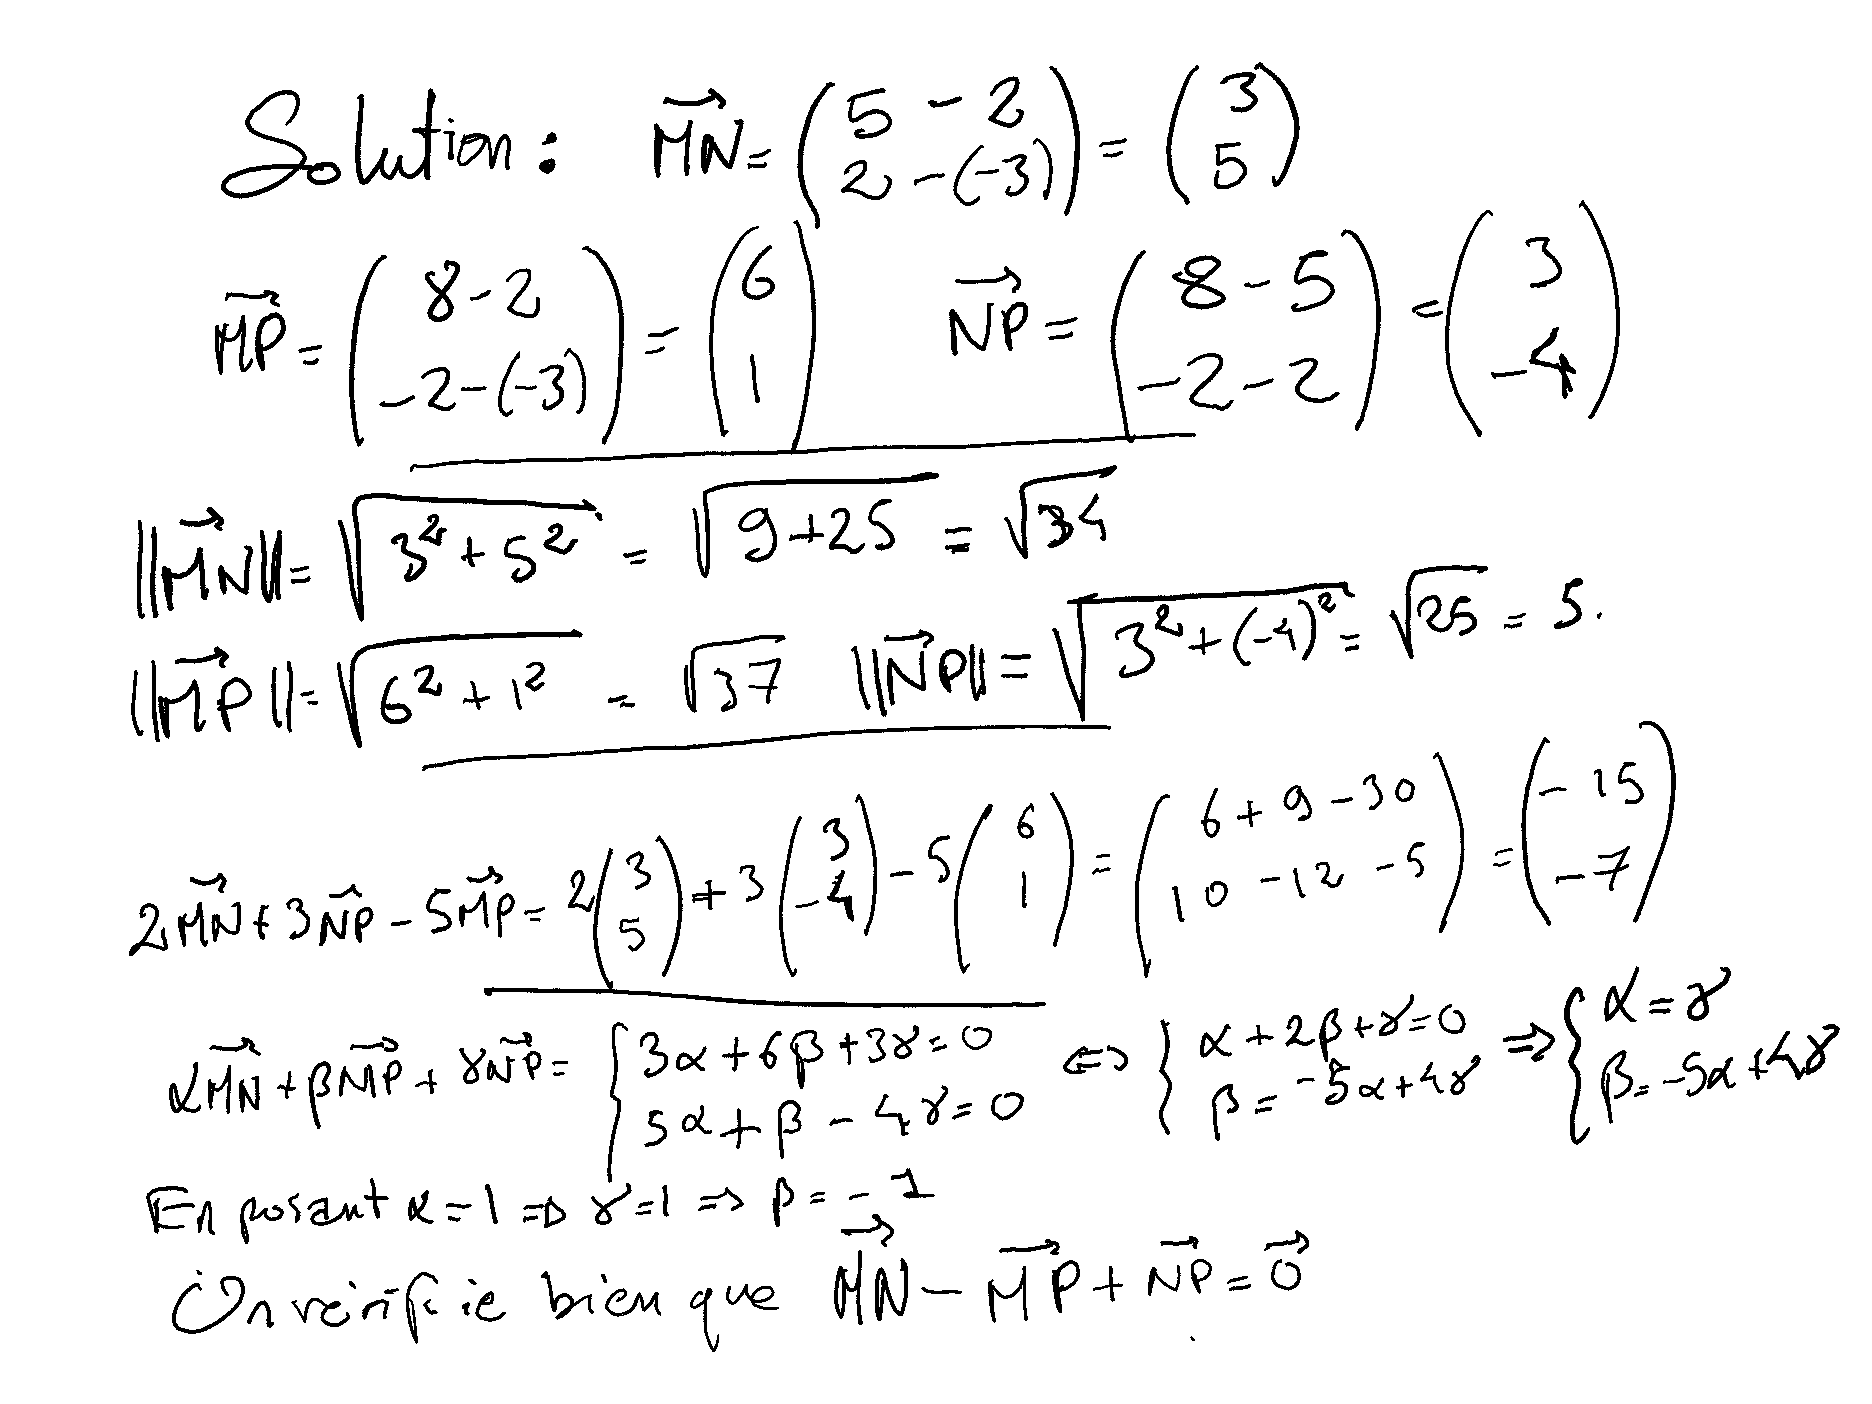 Solution : $\overrightarrow{MN} = \begin{pmatrix} 5-2 \\ 2-(-3) \end{pmatrix} = \begin{pmatrix} 3 \\ 5 \end{pmatrix}$
$\overrightarrow{MP} = \begin{pmatrix} 8-2 \\ -2-(-3) \end{pmatrix} = \begin{pmatrix} 6 \\ 1 \end{pmatrix}$ $\overrightarrow{NP} = \begin{pmatrix} 8-5 \\ -2-2 \end{pmatrix} = \begin{pmatrix} 3 \\ -4 \end{pmatrix}$
$||\overrightarrow{MN}|| = \sqrt{3^2+5^2} = \sqrt{9+25} = \sqrt{34}$
$||\overrightarrow{MP}|| = \sqrt{6^2+1^2} = \sqrt{37}$ $||\overrightarrow{NP}|| = \sqrt{3^2+(-4)^2} = \sqrt{25} = 5.$
$2\overrightarrow{MN} + 3\overrightarrow{NP} - 5\overrightarrow{MP} = 2\begin{pmatrix} 3 \\ 5 \end{pmatrix} + 3\begin{pmatrix} 3 \\ -4 \end{pmatrix} - 5\begin{pmatrix} 6 \\ 1 \end{pmatrix} = \begin{pmatrix} 6+9-30 \\ 10-12-5 \end{pmatrix} = \begin{pmatrix} -15 \\ -7 \end{pmatrix}$
$\alpha\overrightarrow{MN} + \beta\overrightarrow{MP} + \gamma\overrightarrow{NP} = \begin{cases} 3\alpha+6\beta+3\gamma=0 \\ 5\alpha+\beta-4\gamma=0 \end{cases} \Leftrightarrow \begin{cases} \alpha+2\beta+\gamma=0 \\ \beta=-5\alpha+4\gamma \end{cases} \Rightarrow \begin{cases} \alpha=\gamma \\ \beta=-5\alpha+4\gamma \end{cases}$
En posant $\alpha=1 \Rightarrow \gamma=1 \Rightarrow \beta=-1$
On vérifie bien que $\overrightarrow{MN} - \overrightarrow{MP} + \overrightarrow{NP} = \vec{0}$